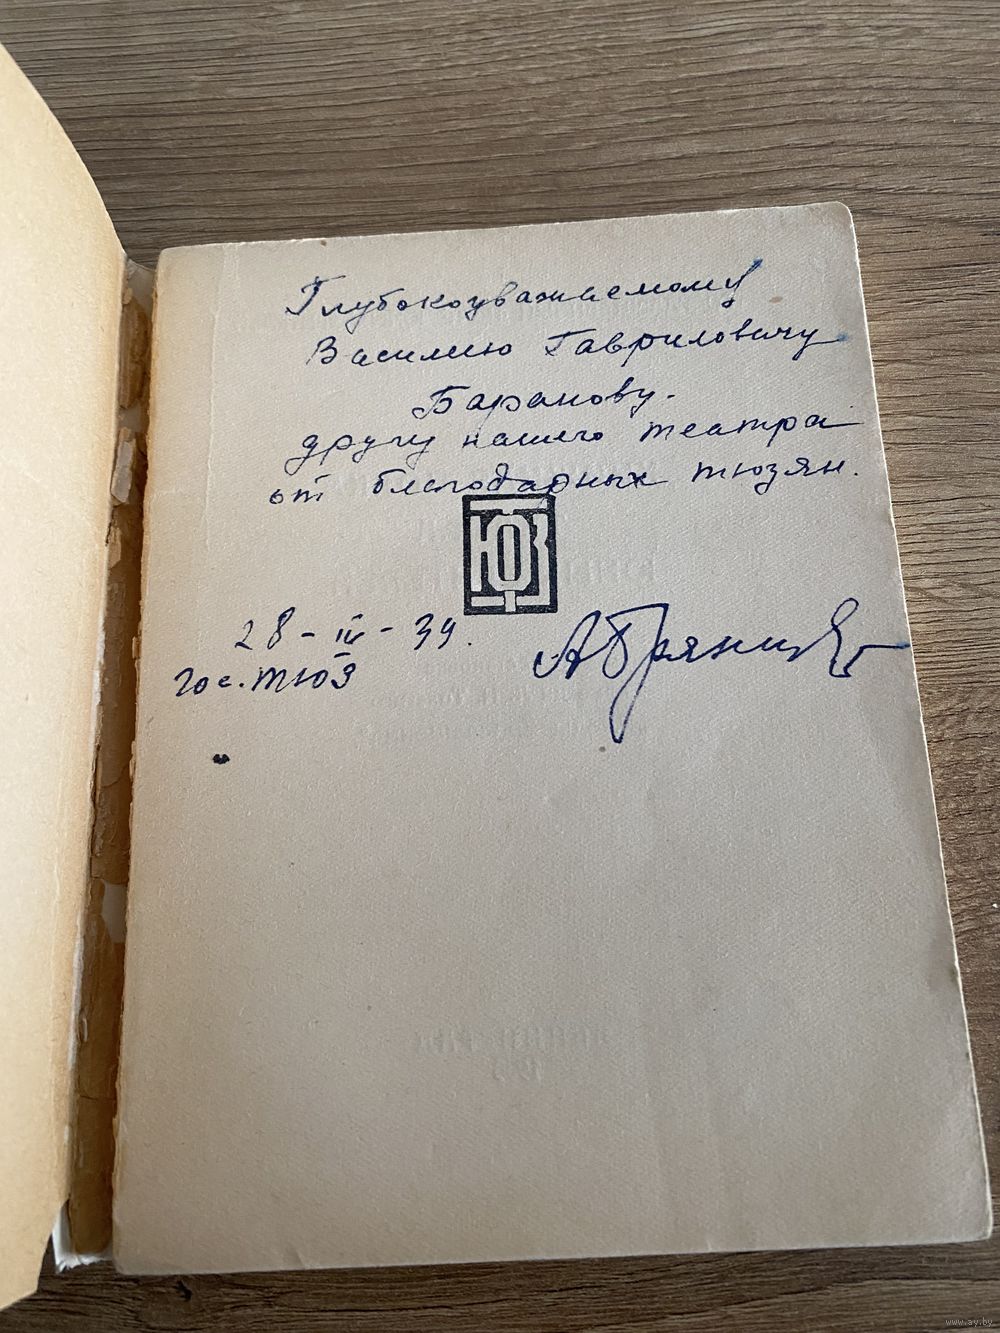 Глубокоуважаемому
Василию Гавриловичу
Баранову.
другу нашего театра
от благодарных тюзян.
ТЮЗ
28-IV-39.
гос. ТЮЗ
АБрянцев
www.ay.by